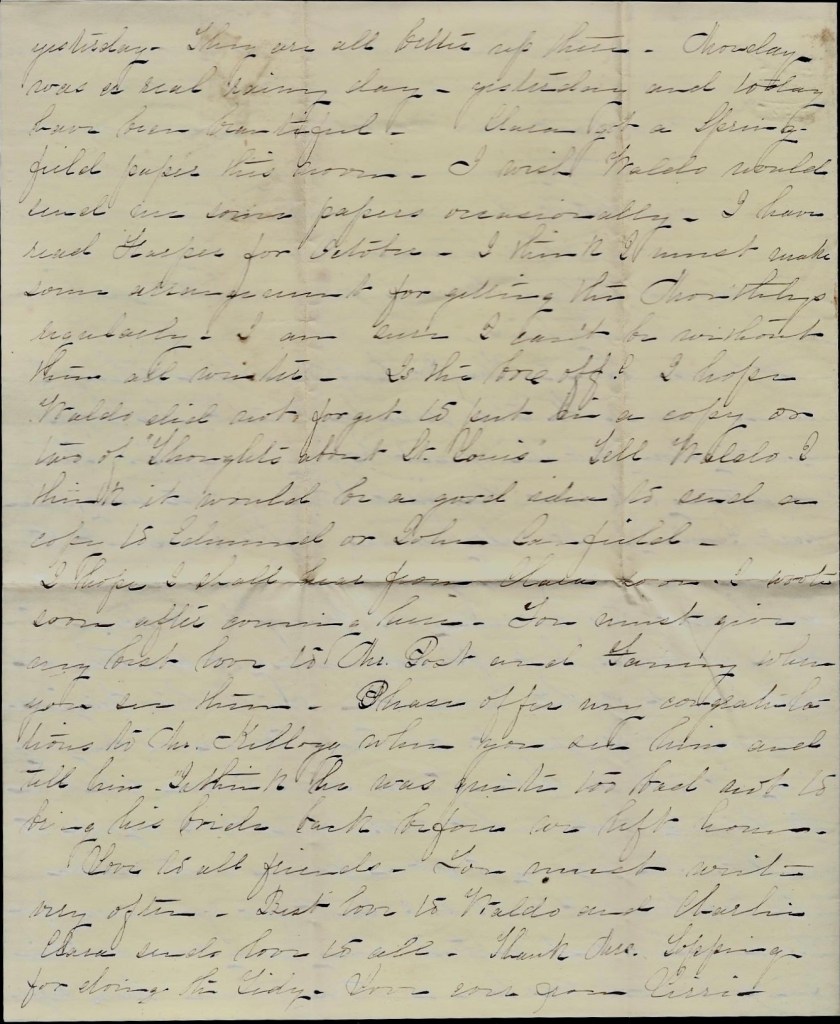 yesterday - They are all better up there - Monday
was a real rainy day - yesterday and today
have been beautiful - Clara got a Spring-
field paper this noon - I wish Waldo would
send me some papers occasionally - I have
read Harper for October - I think I must make
some arrangement for getting the Monthlys
regularly - I am sure I can't be without
them all winter - Is the box off? I hope
Waldo did not forget to put in a copy or
two of "Thoughts about St. Louis" - Tell Waldo I
think it would be a good idea to send a
copy to Edmund or John Canfield -
I hope I shall hear from Clara soon. I wrote
soon after coming here - You must give
my best love to Mr. Post and Fanny when
you see them - Please offer my congratula
tions to Mr. Kellogg when you see him and
tell him I think he was quite too bad not to
bring his bride back before we left home -
Love to all friends - You must write
very often - Best love to Waldo and Charlie
Clara sends love to all - Thank Mrs. Topping
for doing the Tidy - Love ever from